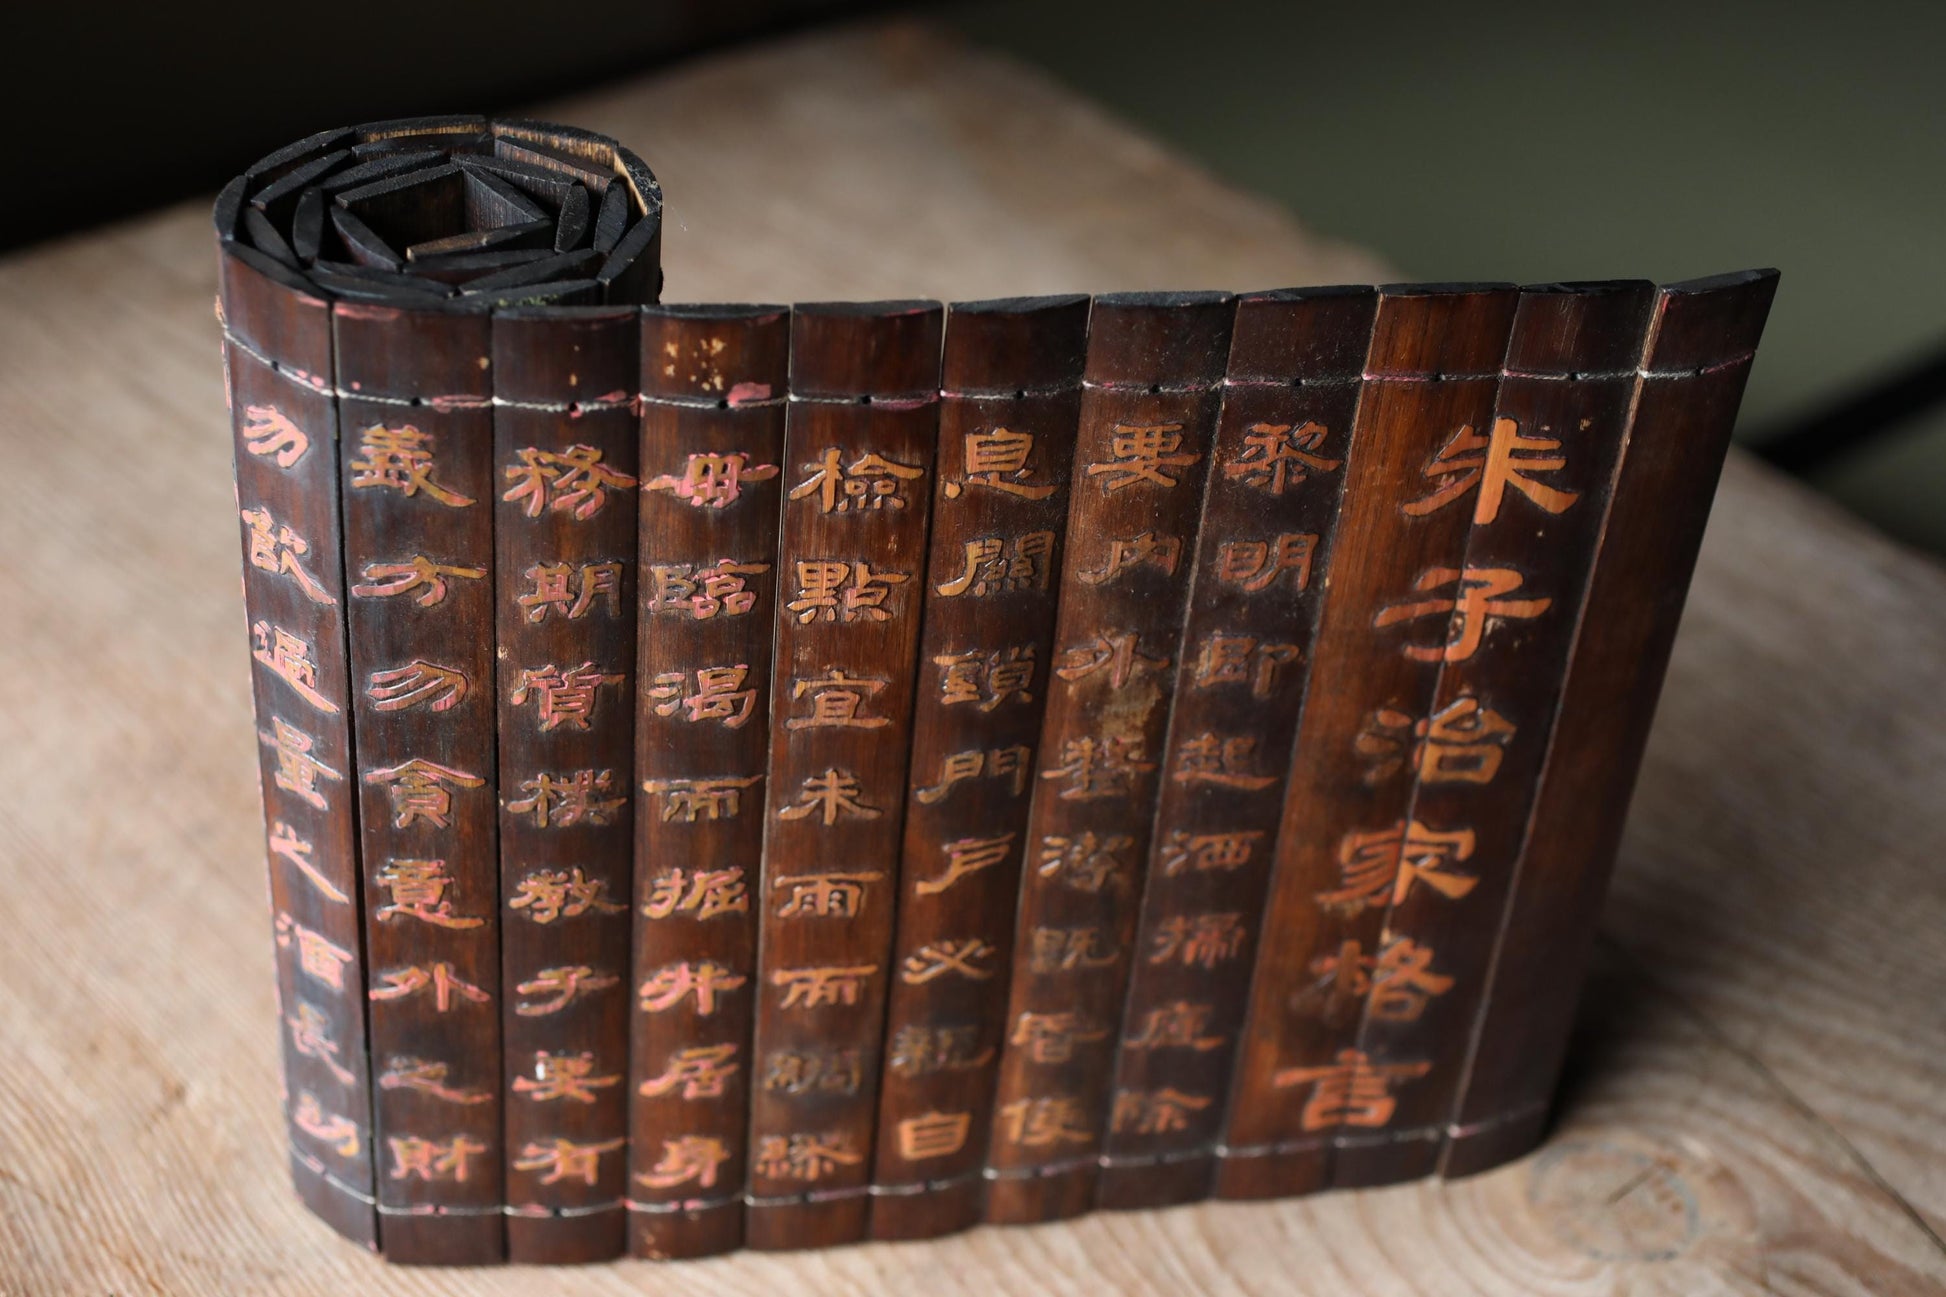 朱子治家格言
黎明即起洒掃庭除
要內外整潔既昏便
息關鎖門戶必親自
檢點宜未雨而綢繆
毋臨渴而掘井居身
務期質樸教子要有
義方勿貪意外之財
勿飲過量之酒長幼